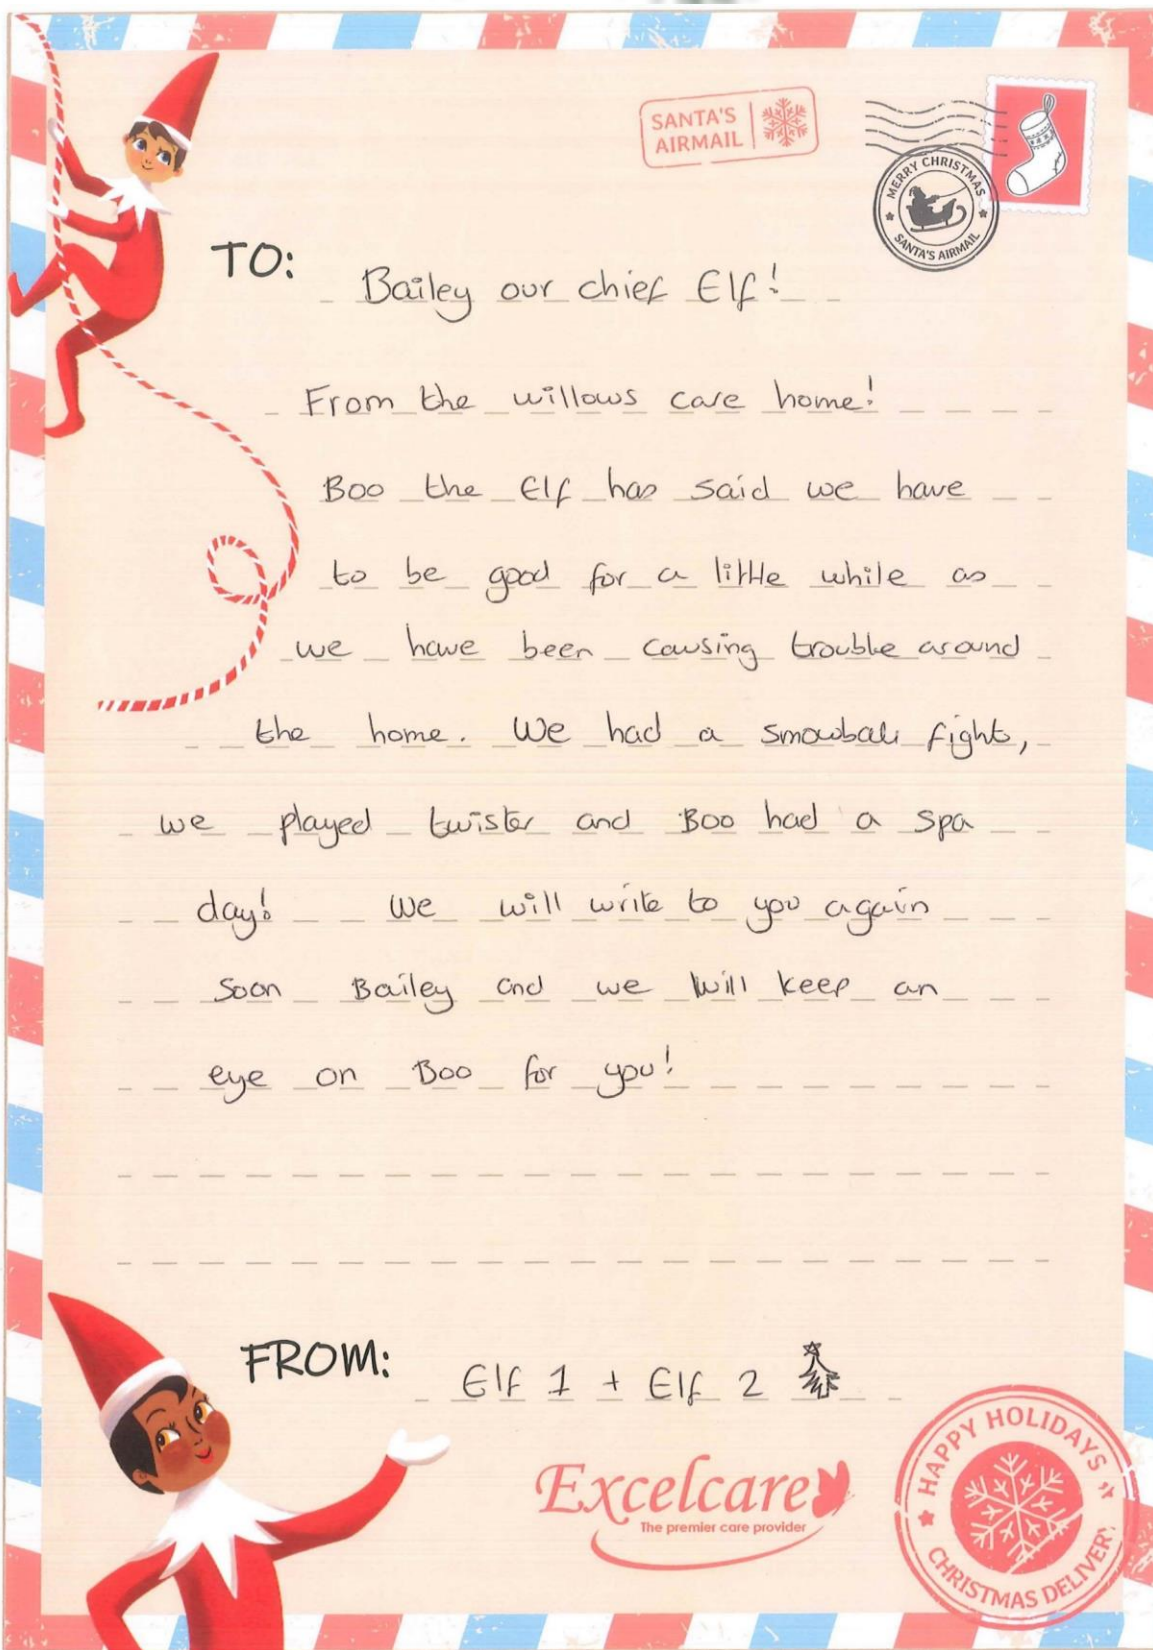 SANTA'S
AIRMAIL
MERRY CHRISTMAS
SANTA'S AIRMAIL
TO: Bailey our chief Elf!
From the willows care home!
Boo the Elf has said we have
to be good for a little while as
we have been causing trouble around
the home. We had a snowball fight,
we played twister and Boo had a spa
day! We will write to you again
soon Bailey and we will keep an
eye on Boo for you!
FROM: Elf 1 + Elf 2
Excelcare
The premier care provider
HAPPY HOLIDAYS
CHRISTMAS DELIVERY